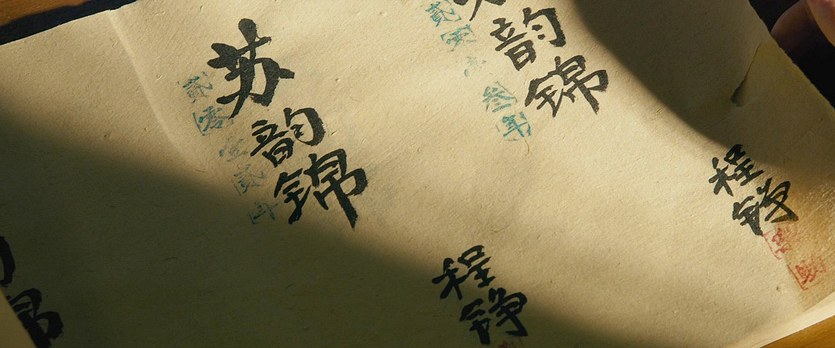 苏韵锦
贰零壹贰年
韵锦
贰零
叁年
程铮
程铮
锦